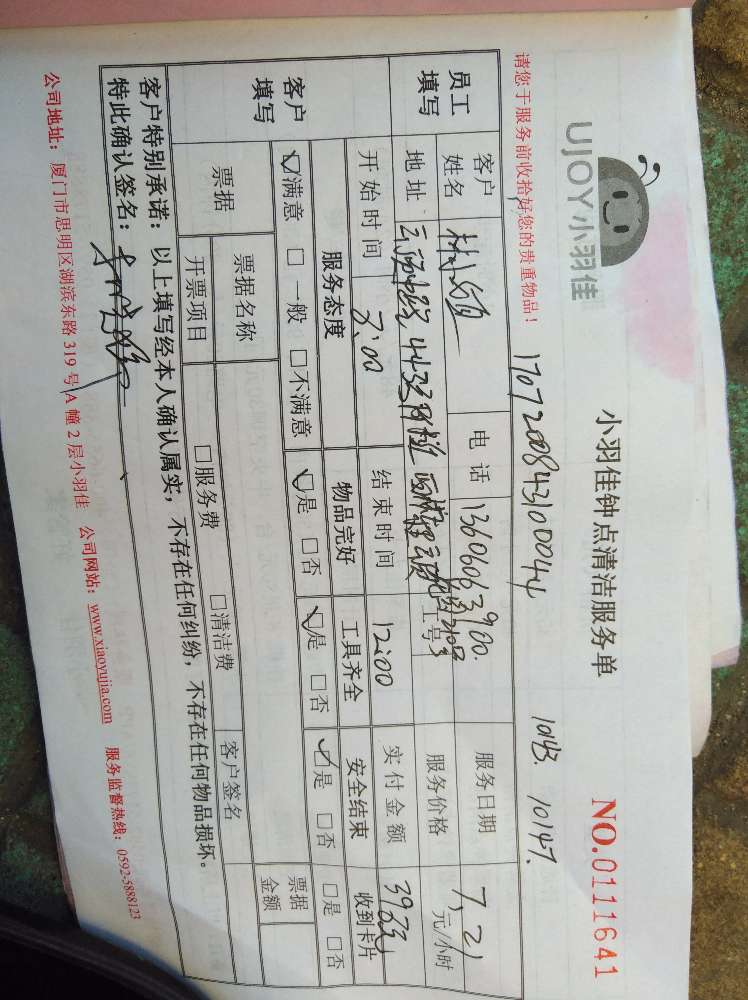 UJOY小羽佳
小羽佳钟点清洁服务单
NO.0111641
请您于服务前收拾好您的贵重物品!
1707200843100044
10143. 10147.
员工填写
客户姓名
电话 13606063900.
服务日期 7.21
地址
4433
工号
服务价格 元/小时
开始时间 7:00
结束时间 12:00
实付金额
客户填写
服务态度 物品完好 工具齐全 安全结束 收到卡片
☑满意 □一般 □不满意 ☑是 □否 ☑是 □否 ☑是 □否 □是 □否
票据
票据名称
开票项目 □服务费 □清洁费
客户签名
票据金额
客户特别承诺:以上填写经本人确认属实,不存在任何纠纷,不存在任何物品损坏。
特此确认签名:
公司地址:厦门市思明区湖滨东路 319 号 A 幢 2 层小羽佳 公司网站:www.xiaoyujia.com 服务监督热线:0592-5888123